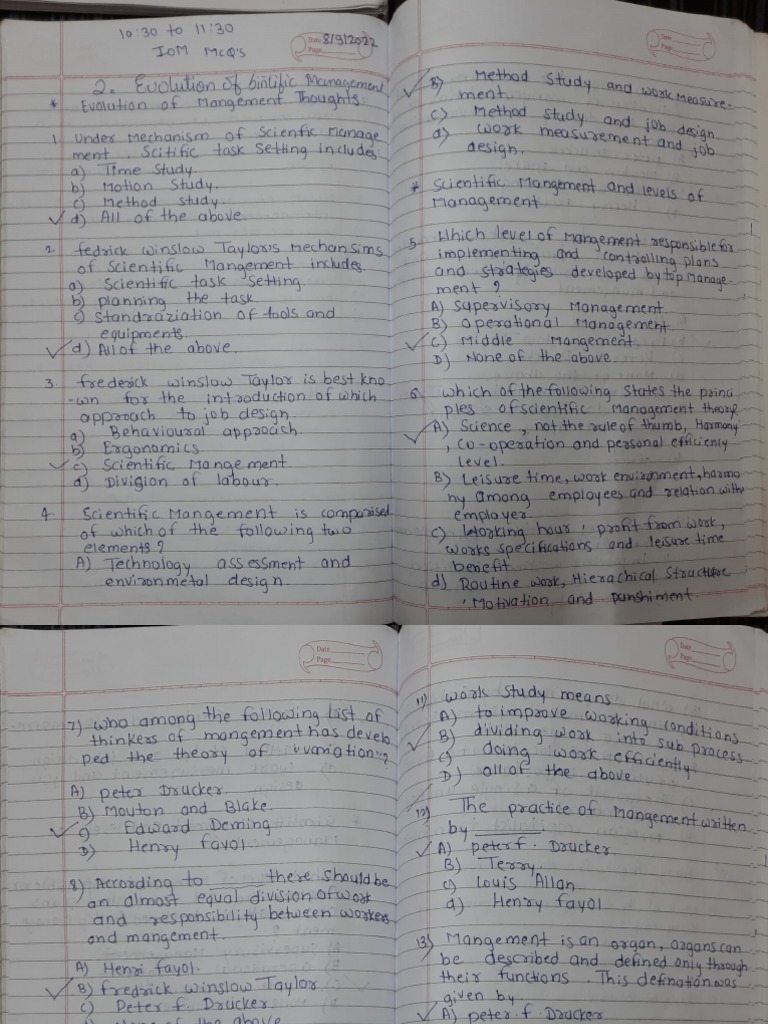 10:30 to 11:30
IOM MCQ's
Date 8/9/2022
Page
2. Evolution of Management
* Evolution of Mangement Thoughts:
1. Under Mechanism of Scienfic Manage
ment. Scitific task Setting includes:
a) Time Study.
b) Motion Study.
c) Method study.
✓ d) All of the above.
2. fedrick winslow Taylor's Mechansims
of Scientific Mangement includes
a) Scientific task Setting
b) planning the task
c) Standraziation of tools and
equipments.
✓ d) All of the above.
3. frederick winslow Taylor is best kno
-wn for the introduction of which
approach to job design.
a) Behavioural approach.
b) Ergonomics
✓ c) Scientific Mangement.
d) Division of labour.
4. Scientific Mangement is comparised
of which of the following two
elements?
A) Technology assessment and
environmetal design.
Date
Page
✓ B) Method Study and work Measure-
ment.
c) Method study and job design
d) work measurement and job
design.
* Scientific Mangement and levels of
Management
5. Which level of mangement responsible for
implementing and controlling plans
and strategies developed by top Manage-
ment ?
A) Supervisory Management
B) operational Management
✓ C) Middle Mangement.
D) None of the above.
6. which of the following States the princi
ples of scientific Management theory?
✓ A) Science, not the rule of thumb, Harmony
, co-operation and personal efficienly
level.
B) Leisure time, work environment, harmo
ny among employees and relation with
employer
c) Working hour, profit from work,
works specifications and leisure time
benefit
d) Routine work, Hierachical Structure
, Motivation and punshiment.
Date
Page
7) who among the following List of
thinkers of mangement has develo
ped the theory of "variation"?
A) peter Drucker.
B) Mouton and Blake.
✓ c) Edward Deming
D) Henry fayol.
8) According to ____ there should be
an almost equal division of work
and responsibility between workers
and mangement.
A) Henri fayol.
✓ B) fredrick winslow Taylor
c) Peter f. Drucker
of the above
Date
Page
11) work study means
A) to improve working conditions
✓ B) dividing work into sub process
c) doing work efficiently
D) all of the above.
12) The practice of Mangement written
by ____
✓ A) peter f. Drucker.
B) Terry.
c) Louis Allan
d) Henry fayol
13) Mangement is an organ, organs can
be described and defined only through
their functions. This defination was
given by
✓ A) peter. f. Drucker